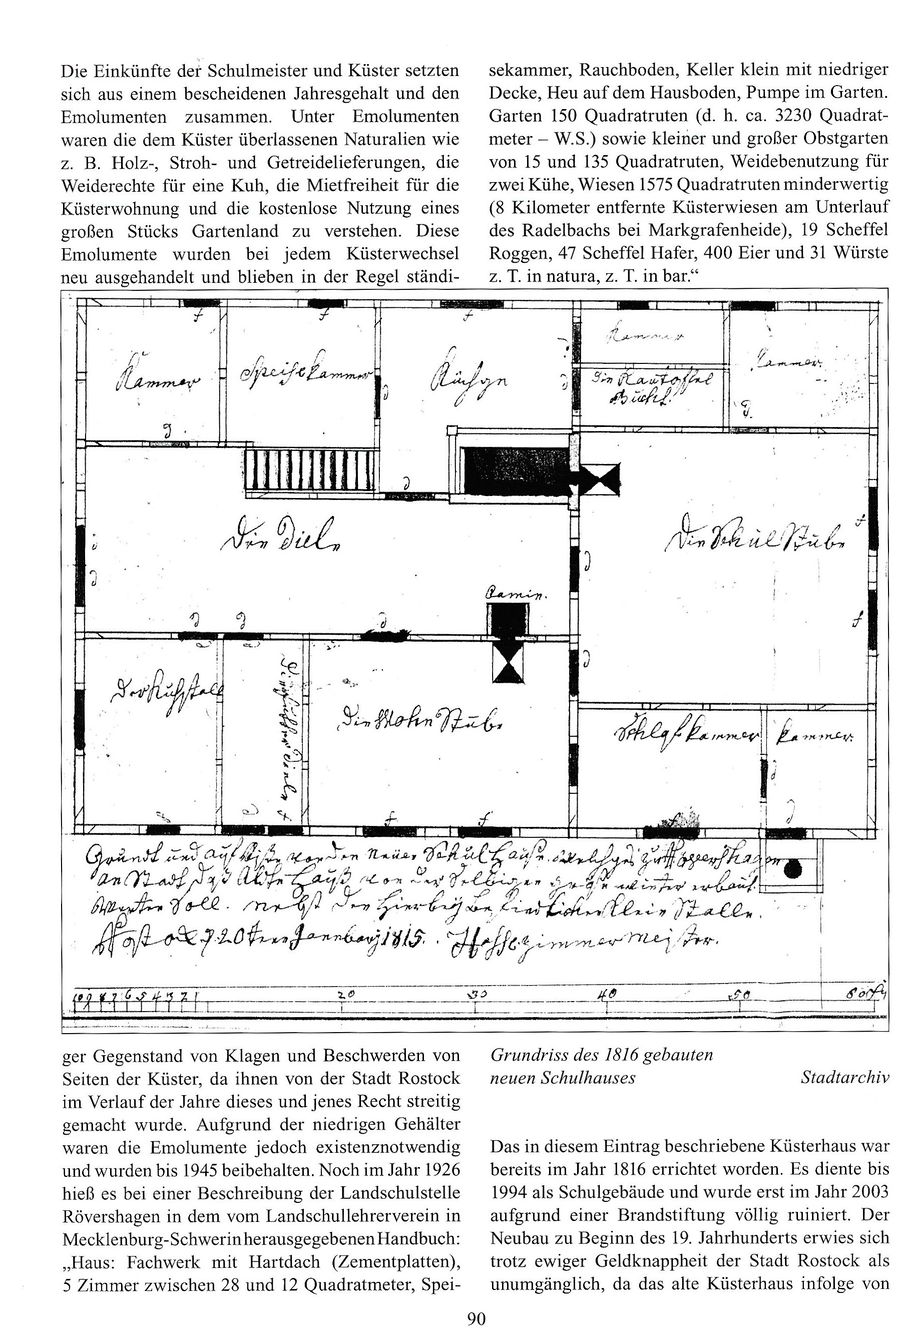 Die Einkünfte der Schulmeister und Küster setzten
sich aus einem bescheidenen Jahresgehalt und den
Emolumenten zusammen. Unter Emolumenten
waren die dem Küster überlassenen Naturalien wie
z. B. Holz-, Stroh- und Getreidelieferungen, die
Weiderechte für eine Kuh, die Mietfreiheit für die
Küsterwohnung und die kostenlose Nutzung eines
großen Stücks Gartenland zu verstehen. Diese
Emolumente wurden bei jedem Küsterwechsel
neu ausgehandelt und blieben in der Regel ständi-
sekammer, Rauchboden, Keller klein mit niedriger
Decke, Heu auf dem Hausboden, Pumpe im Garten.
Garten 150 Quadratruten (d. h. ca. 3230 Quadrat-
meter – W.S.) sowie kleiner und großer Obstgarten
von 15 und 135 Quadratruten, Weidebenutzung für
zwei Kühe, Wiesen 1575 Quadratruten minderwertig
(8 Kilometer entfernte Küsterwiesen am Unterlauf
des Radelbachs bei Markgrafenheide), 19 Scheffel
Roggen, 47 Scheffel Hafer, 400 Eier und 31 Würste
z. T. in natura, z. T. in bar.“
Kammer
Speisekammer
Küchge
Kammer
Die Kartoffel
Bucht.
Kammer
Die Diele
Die Schul Stube
Camin.
Der Kuhstall
Die Wohn Stube
Schlafkammer
Kammer
Grundt und auf von den neuen Schul Hause welches zu
an Stadt Des Alte Hauß von der Selbigen größe wieder erbaut
Werden Soll. nebst den Hierbey Befindlichen Klein Stalle.
Rostock 20ten 1815. Zimmermeister.
10 9 8 7 6 5 4 3 2 1
20
30
40
50
60
ger Gegenstand von Klagen und Beschwerden von
Seiten der Küster, da ihnen von der Stadt Rostock
im Verlauf der Jahre dieses und jenes Recht streitig
gemacht wurde. Aufgrund der niedrigen Gehälter
waren die Emolumente jedoch existenznotwendig
und wurden bis 1945 beibehalten. Noch im Jahr 1926
hieß es bei einer Beschreibung der Landschulstelle
Rövershagen in dem vom Landschullehrerverein in
Mecklenburg-Schwerin herausgegebenen Handbuch:
„Haus: Fachwerk mit Hartdach (Zementplatten),
5 Zimmer zwischen 28 und 12 Quadratmeter, Spei-
Grundriss des 1816 gebauten
neuen Schulhauses Stadtarchiv
Das in diesem Eintrag beschriebene Küsterhaus war
bereits im Jahr 1816 errichtet worden. Es diente bis
1994 als Schulgebäude und wurde erst im Jahr 2003
aufgrund einer Brandstiftung völlig ruiniert. Der
Neubau zu Beginn des 19. Jahrhunderts erwies sich
trotz ewiger Geldknappheit der Stadt Rostock als
unumgänglich, da das alte Küsterhaus infolge von
90